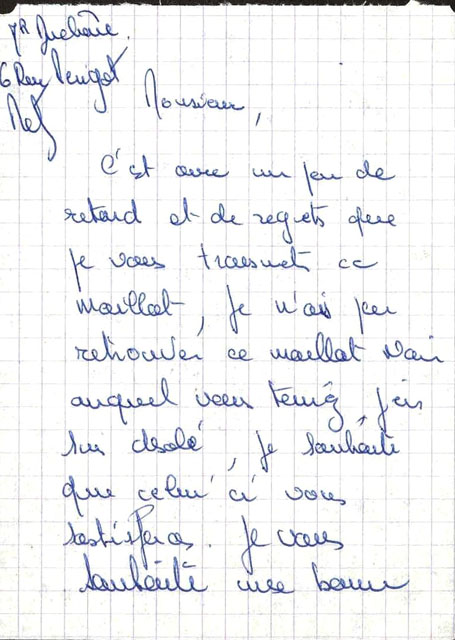 6 Rue
Monsieur,
C'est avec un peu de
retard et de regrets que
je vous transmets ce
maillot, je n'ais pu
retrouver ce maillot Noir
auquel vous teniez, j'en
suis désolé, je souhaite
que celui ci vous
satisferas. Je vous
souhaite une bonne